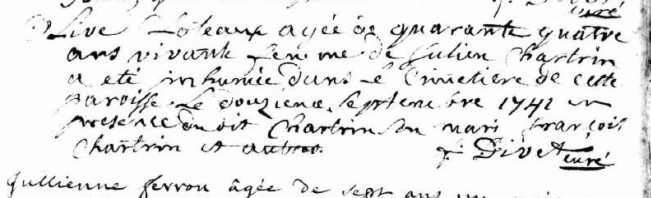 curé
Olive Loteaux agée de quarante quatre
ans vivante femme de Julien Chartrin
a eté inhumée dans le Cimetiere de cette
paroisse le douzieme septembre 1741 en
presence du dit Chartrin son mari françois
Chartrin et autres f Divet curé
Jullienne ferron âgée de sept ans